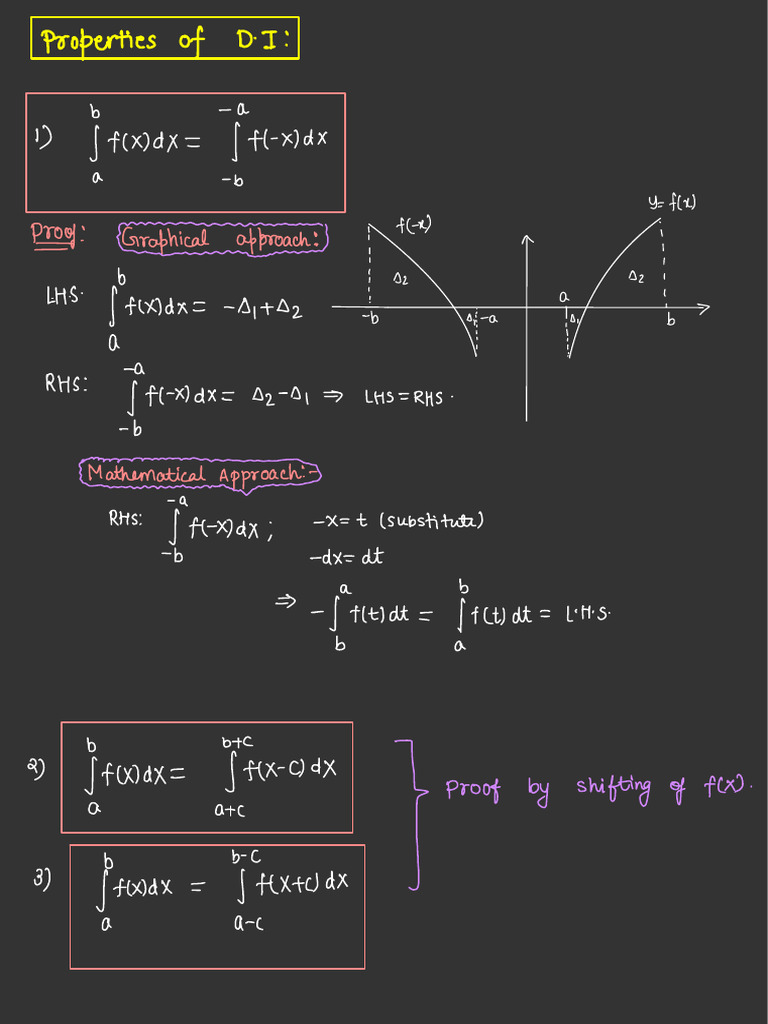 Properties of D.I:
1) ∫_a^b f(x)dx = ∫_{-b}^{-a} f(-x)dx
Proof: Graphical approach:
LHS. ∫_a^b f(x)dx = -Δ₁+Δ₂
RHS: ∫_{-b}^{-a} f(-x)dx = Δ₂-Δ₁ ⇒ LHS=RHS.
f(-x)
y=f(x)
Δ₂
Δ₂
-b
Δ₁
-a
a
Δ₁
b
Mathematical Approach:-
RHS: ∫_{-b}^{-a} f(-x)dx ; -x=t (substitute)
-dx=dt
⇒ -∫_b^a f(t)dt = ∫_a^b f(t)dt = L.H.S.
2) ∫_a^b f(x)dx = ∫_{a+c}^{b+c} f(x-c)dx
3) ∫_a^b f(x)dx = ∫_{a-c}^{b-c} f(x+c)dx
Proof by shifting of f(x).